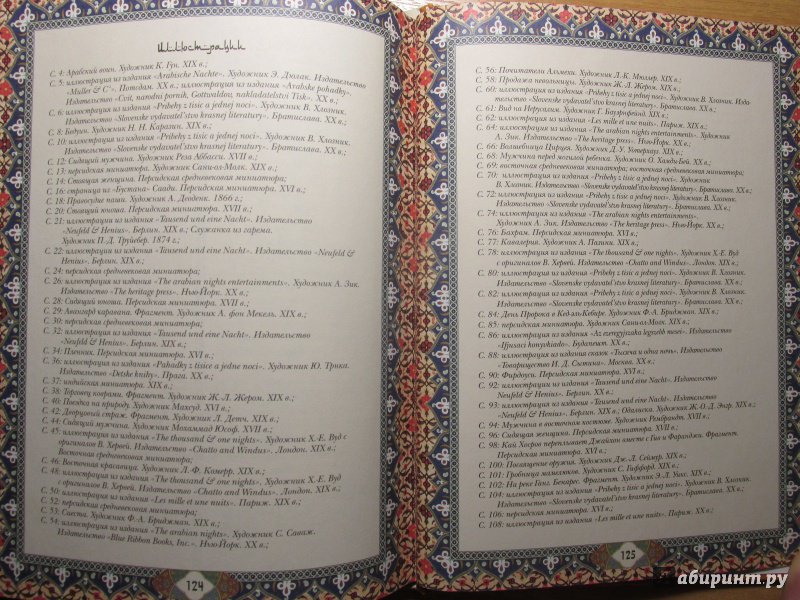 Иллюстрации
С. 4: Арабский воин. Художник К. Гун. XIX в.;
С. 5: иллюстрация из издания «Arabische Nachte». Художник Э. Дюлак. Издательство
«Muller & C°». Потсдам. XX в.; иллюстрация из издания «Arabske pohadky».
Издательство «Csit, narodni pornik, Gottvaldov, nakladatelstvi Tisk». XX в.;
С. 6: иллюстрация из издания «Pribehy z tisic a jednej noci». Художник В. Хлозник.
Издательство «Slovenske vydavatel'stvo krasnej literatury». Братислава. XX в.;
С. 8: Бедуин. Художник Н. Н. Каразин. XIX в.;
С. 10: иллюстрация из издания «Pribehy z tisic a jednej noci». Художник В. Хлозник.
Издательство «Slovenske vydavatel'stvo krasnej literatury». Братислава. XX в.;
С. 12: Сидящий мужчина. Художник Реза Аббасси. XVII в.;
С. 13: персидская миниатюра. Художник Сани-ол-Молк. XIX в.;
С. 14: Стоящая женщина. Персидская средневековая миниатюра;
С. 16: страница из «Бустана» Саади. Персидская миниатюра. XVI в.;
С. 18: Правосудие паши. Художник А. Дюденк. 1866 г.;
С. 20: Стоящий юноша. Персидская миниатюра. XVII в.;
С. 21: иллюстрация из издания «Tausend und eine Nacht». Издательство
«Neufeld & Henius». Берлин. XIX в.; Служанка из гарема.
Художник П. Д. Труйебер. 1874 г.;
С. 22: иллюстрация из издания «Tausend und eine Nacht». Издательство «Neufeld &
Henius». Берлин. XIX в.;
С. 24: персидская средневековая миниатюра;
С. 26: иллюстрация из издания «The arabian nights entertainments». Художник А. Зик.
Издательство «The heritage press». Нью-Йорк. XX в.;
С. 28: Сидящий юноша. Персидская миниатюра. XVII в.;
С. 29: Авангард каравана. Фрагмент. Художник А. фон Мекель. XIX в.;
С. 30: персидская средневековая миниатюра;
С. 32: иллюстрация из издания «Tausend und eine Nacht». Издательство
«Neufeld & Henius». Берлин. XIX в.;
С. 34: Пленник. Персидская миниатюра. XVI в.;
С. 36: иллюстрация из издания «Pahadky z tisice a jedne noci». Художник Ю. Трнка.
Издательство «Detske knihy». Прага. XX в.;
С. 37: индийская миниатюра. XIX в.;
С. 38: Торговец коврами. Фрагмент. Художник Ж.-Л. Жером. XIX в.;
С. 40: Поездка на природу. Художник Махмуд. XVI в.;
С. 42: Дворцовый страж. Фрагмент. Художник Л. Дейч. XIX в.;
С. 44: Сидящий мужчина. Художник Мохаммад Юсоф. XVII в.;
С. 45: иллюстрация из издания «The thousand & one nights». Художник Х.-Е. Вуд
с оригиналов В. Хервей. Издательство «Chatto and Windus». Лондон. XIX в.;
Восточная средневековая миниатюра;
С. 46: Восточная красавица. Художник Л.Ф. Комерр. XIX в.;
С. 48: иллюстрация из издания «The thousand & one nights». Художник Х.-Е. Вуд
с оригиналов В. Хервей. Издательство «Chatto and Windus». Лондон. XIX в.;
С. 50: иллюстрация из издания «Les mille et une nuits». Париж. XIX в.;
С. 52: персидская средневековая миниатюра;
С. 53: Сиеста. Художник Ф. А. Бриджман. XIX в.;
С. 54: иллюстрация из издания «The arabian nights». Художник С. Саваж.
Издательство «Blue Ribbon Books, Inc.». Нью-Йорк. XX в.;
124
С. 56: Почитатели Альмеи. Художник Л.К. Мюллер. XIX в.;
С. 58: Продажа невольницы. Художник Ж. Л. Жером. XIX в.;
С. 60: иллюстрация из издания «Pribehy z tisic a jednej noci». Художник В. Хлозник. Изда-
тельство «Slovenske vydavatel'stvo krasnej literatury». Братислава. XX в.;
С. 61: Вид на Персидская. Художник Г. XIX в.;
С. 62: иллюстрация из издания «Les mille et une nuits». Париж. XIX в.;
С. 64: иллюстрация из издания «The arabian nights entertainments». Художник
А. Зик. Издательство «The heritage press». Нью-Йорк. XX в.;
С. 66: Волшебница Цирцея. Художник Д. У. Уотерхауз. XIX в.;
С. 68: Мужчина перед могилой ребенка. Художник О. Хамди Бей. XIX в.;
С. 69: восточная средневековая миниатюра; восточная средневековая миниатюра;
С. 70: иллюстрация из издания «Pribehy z tisic a jednej noci». Художник
В. Хлозник. Издательство «Slovenske vydavatel'stvo krasnej literatury». Братислава. XX в.;
С. 72: иллюстрация из издания «Pribehy z tisic a jednej noci». Художник В. Хлозник.
Издательство «Slovenske vydavatel'stvo krasnej literatury». Братислава. XX в.;
С. 74: иллюстрация из издания «The arabian nights entertainments».
Художник А. Зик. Издательство «The heritage press». Нью-Йорк. XX в.;
С. 76: Бахрам. Персидская миниатюра. XVI в.;
С. 77: Кавалерия. Художник А. Пазини. XIX в.;
С. 78: иллюстрация из издания «The thousand & one nights». Художник Х.-Е. Вуд
с оригиналов В. Хервей. Издательство «Chatto and Windus». Лондон. XIX в.;
С. 80: иллюстрация из издания «Pribehy z tisic a jednej noci». Художник В. Хлозник.
Издательство «Slovenske vydavatel'stvo krasnej literatury». Братислава. XX в.;
С. 82: иллюстрация из издания «Pribehy z tisic a jednej noci». Художник В. Хлозник.
Издательство «Slovenske vydavatel'stvo krasnej literatury».
Братислава. XX в.;
С. 84: День Пророка в Кед-аль-Кебире. Художник Ф. А. Бриджман. XIX в.;
С. 85: персидская миниатюра. Художник Сани-ол-Молк. XIX в.;
С. 86: иллюстрация из издания «Az ezeregyjszaka legszebb mesei». Издательство
«Ifjusaci konyvkiado». Будапешт. XX в.;
С. 88: иллюстрация из издания сказок «Тысяча и одна ночь». Издательство
«Товарищество И. Д. Сытина». Москва. XIX в.;
С. 90: Фирдоуси. Персидская миниатюра. XVI в.;
С. 92: иллюстрация из издания «Tausend und eine Nacht». Издательство
Neufeld & Henius». Берлин. XIX в.;
С. 93: иллюстрация из издания «Tausend und eine Nacht». Издательство
«Neufeld & Henius». Берлин. XIX в.; Одалиска. Художник Ж.-О.-Д. Энгр. XIX в.;
С. 94: Мужчина в восточном костюме. Художник Рембрандт. XVII в.;
С. 96: Сидящая женщина. Персидская миниатюра. XVII в.;
С. 98: Кай Хосров переплывает Джайхан вместе с Гив и Фаранджи. Фрагмент.
Персидская миниатюра. XVI в.;
С. 100: Посвящение оружия. Художник Дж. Л. Сеймер. XIX в.;
С. 101: Гробница мамлюков. Художник С. Гиффорд. XIX в.;
С. 102: На реке Ганг. Бенарес. Фрагмент. Художник Э. Л. Уикс. XIX в.;
С. 104: иллюстрация из издания «Pribehy z tisic a jednej noci». Художник В. Хлозник.
Издательство «Slovenske vydavatel'stvo krasnej literatury».
Братислава. XX в.;
С. 106: персидская миниатюра. XVI в.;
С. 108: иллюстрация из издания «Les mille et une nuits». Париж. XX в.;
125
абиринт.ру